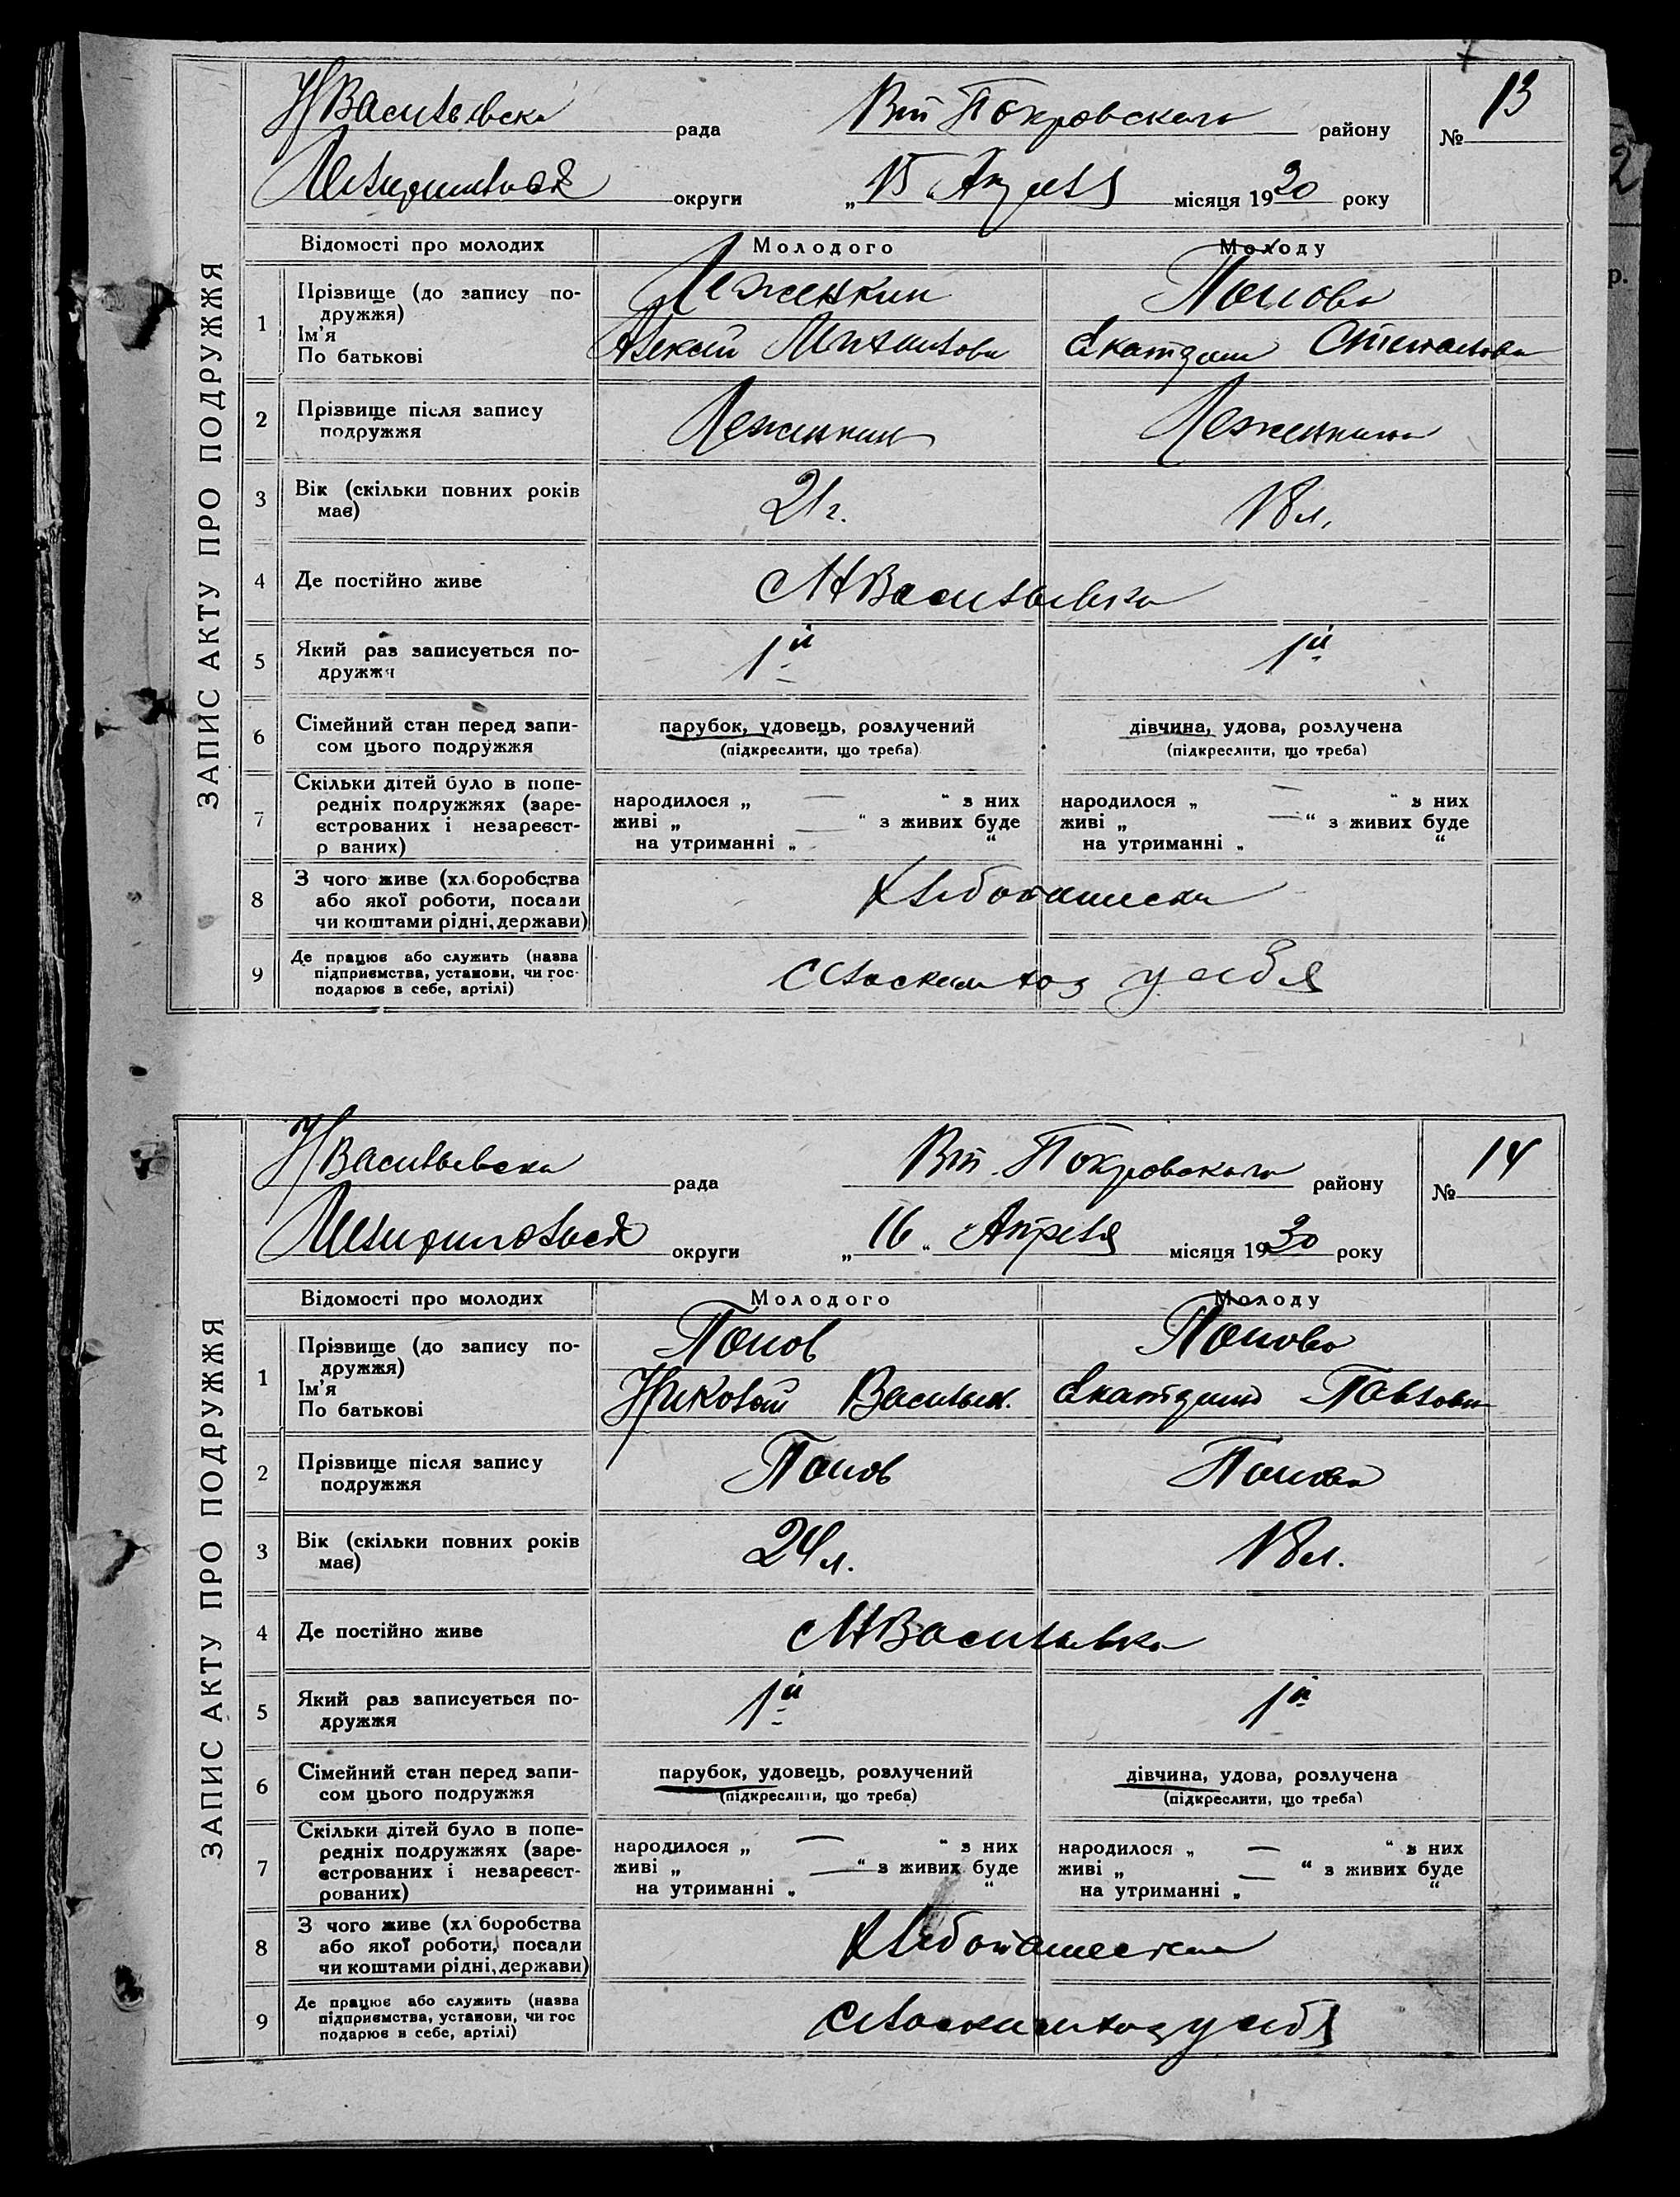 ЗАПИС АКТУ ПРО ПОДРУЖЖЯ
НВасильевска рада Вт Покровского району № 13
Мелитопольской округи „ 15 „ Апреля місяця 1930 року
Відомості про молодих Молодого Молоду
1 Прізвище (до запису по- Леженкин Попова
дружжя)
Ім'я
По батькові Алексей Михайлови Екатерина Степановна
2 Прізвище після запису Леженкин Леженкина
подружжя
3 Вік (скільки повних років 21 г. 18 л.
має)
4 Де постійно живе с НВасильевка
5 Який раз записується по- 1й 1й
дружжя
6 Сімейний стан перед запи- парубок, удовець, розлучений дівчина, удова, розлучена
сом цього подружжя (підкреслити, що треба) (підкреслити, що треба)
7 Скільки дітей було в попе-
редніх подружжях (заре- народилося „ — “ з них народилося „ — “ з них
єстрованих і незареєст- живі „ — “ з живих буде живі „ — “ з живих буде
р ваних) на утриманні „ “ на утриманні „ “
8 З чого живе (хл боробства
або якої роботи, посади Хлебопашески
чи коштами рідні, держави)
9 Де працює або служить (назва
підприємства, установи, чи гос- сельскам хоз у себя
подарює в себе, артілі)
ЗАПИС АКТУ ПРО ПОДРУЖЖЯ
НВасильевска рада Вт. Покровского району № 14
Мелитопольской округи „ 16 „ Апреля місяця 1930 року
Відомості про молодих Молодого Молоду
1 Прізвище (до запису по- Попов Попова
дружжя)
Ім'я
По батькові Николай Васильев. Екатерина Павловн
2 Прізвище після запису Попов Попова
подружжя
3 Вік (скільки повних років 24 л. 18 л.
має)
4 Де постійно живе с НВасильевка
5 Який раз записується по- 1й 1й
дружжя
6 Сімейний стан перед запи- парубок, удовець, розлучений дівчина, удова, розлучена
сом цього подружжя (підкреслити, що треба) (підкреслити, що треба)
7 Скільки дітей було в попе-
редніх подружжях (заре- народилося „ — “ з них народилося „ — “ з них
єстрованих і незареєст- живі „ — “ з живих буде живі „ — “ з живих буде
рованих) на утриманні „ “ на утриманні „ “
8 З чого живе (хл боробства
або якої роботи, посади Хлебопашеским
чи коштами рідні, держави)
9 Де працює або служить (назва
підприємства, установи, чи гос хоз у себя
подарює в себе, артілі)